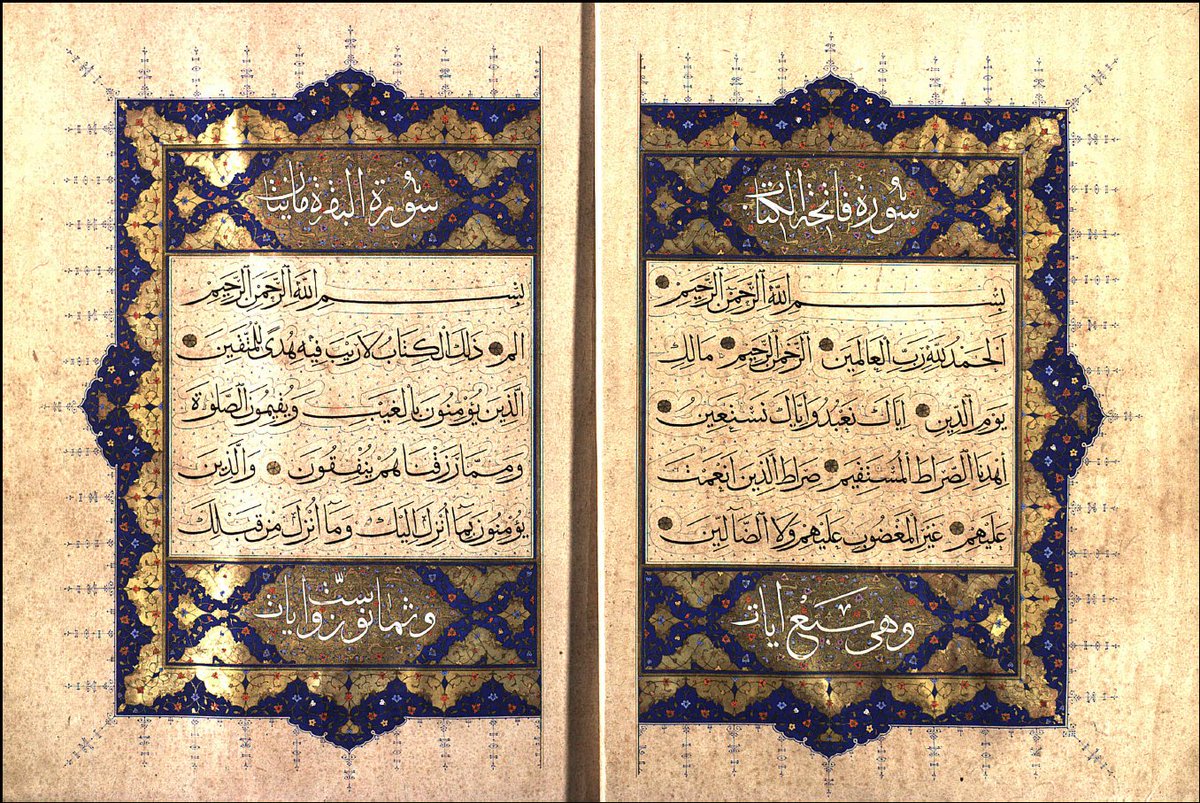 سورة فاتحة الكتاب
بسم الله الرحمن الرحيم
الحمد لله رب العالمين الرحمن الرحيم مالك
يوم الدين اياك نعبد واياك نستعين
اهدنا الصراط المستقيم صراط الذين انعمت
عليهم غير المغضوب عليهم ولا الضالين
وهي سبع ايات
سورة البقرة مايتان
بسم الله الرحمن الرحيم
الم ذلك الكتاب لا ريب فيه هدى للمتقين
الذين يؤمنون بالغيب ويقيمون الصلوة
ومما رزقناهم ينفقون والذين
يؤمنون بما انزل اليك وما انزل من قبلك
وست وثمانون ايات